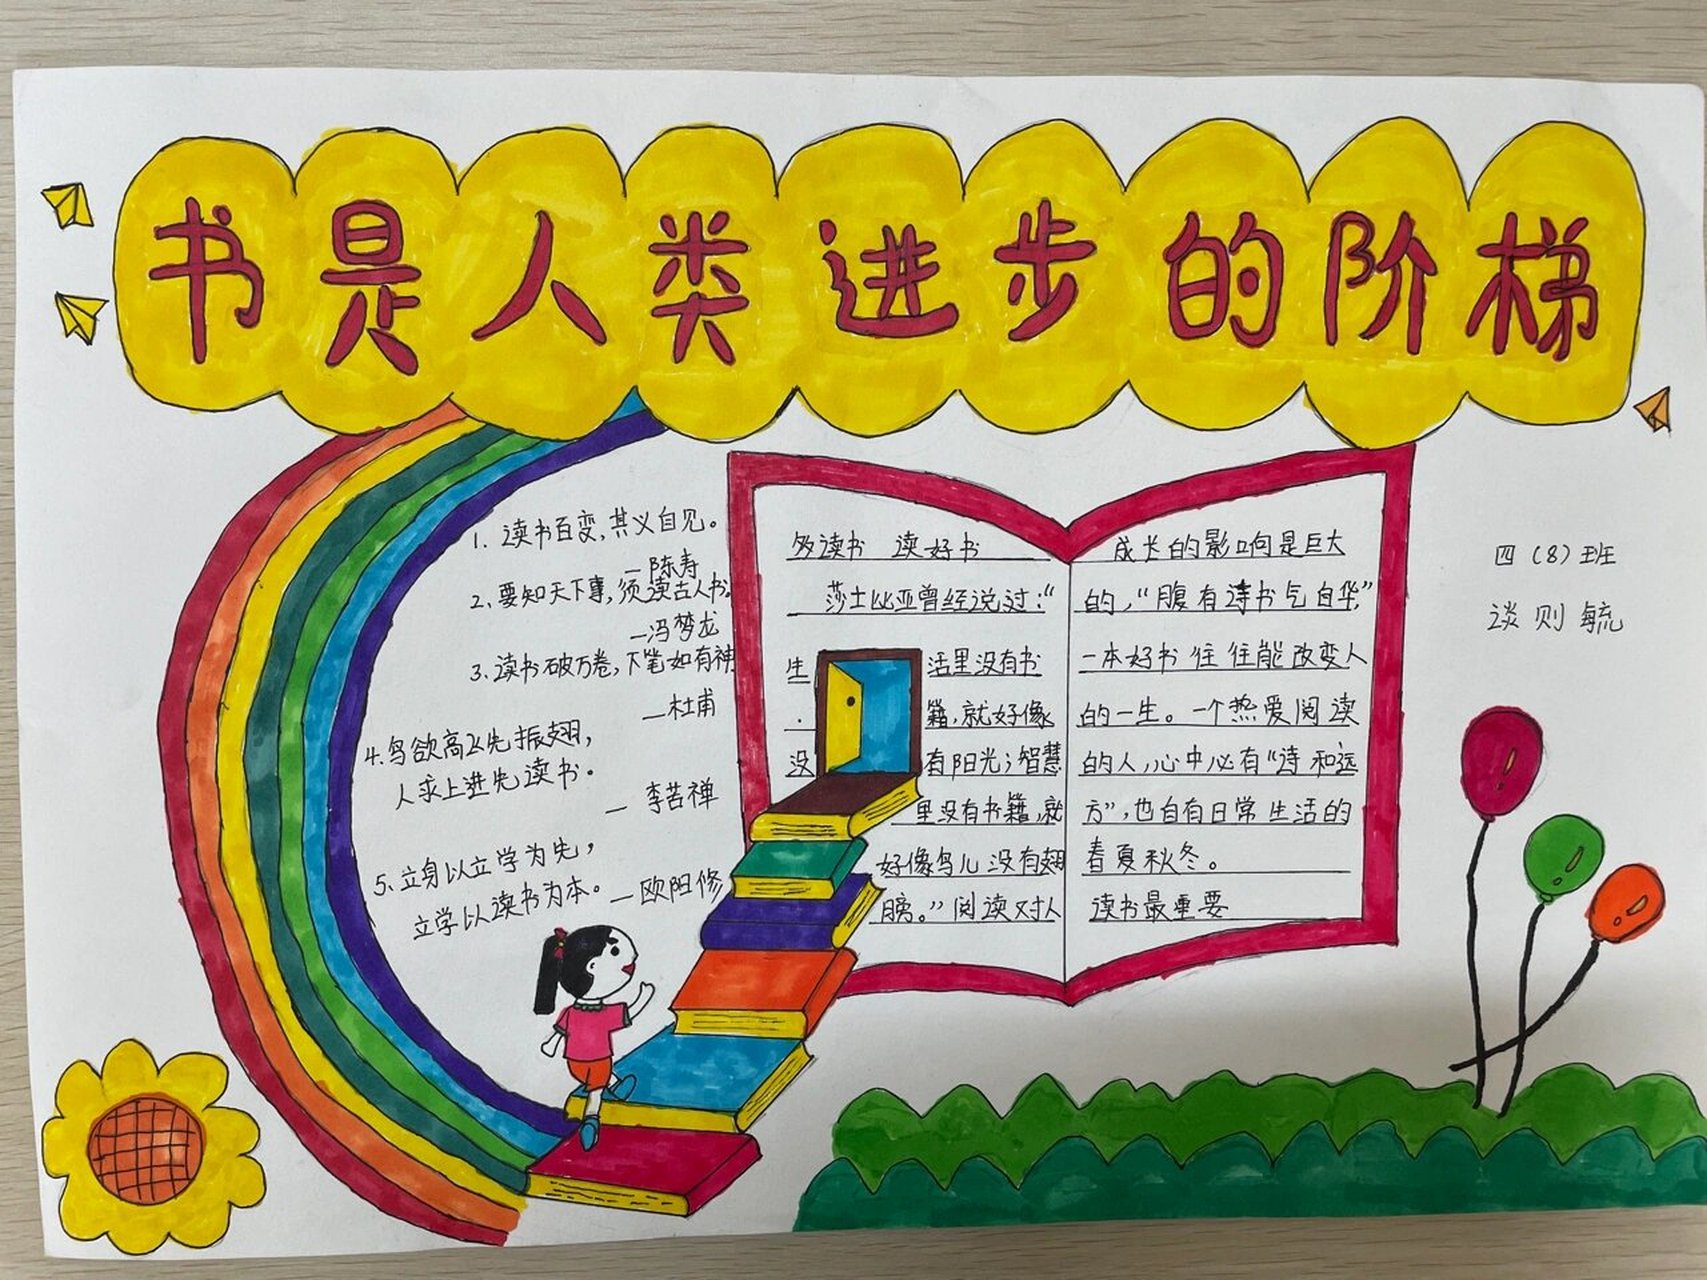 书是人类进步的阶梯
1. 读书百变,其义自见。
—陈寿
2、要知天下事,须读古人书。
—冯梦龙
3、读书破万卷,下笔如有神
—杜甫
4.鸟欲高飞先振翅,
人求上进先读书。
— 李苦禅
5、立身以立学为先,
立学以读书为本。—欧阳修
多读书 读好书
莎士比亚曾经说过:“
生 活里没有书
籍,就好像
没 有阳光;智慧
里没有书籍,就
好像鸟儿没有翅
膀。”阅读对人
成长的影响是巨大
的,“腹有诗书气自华,”
一本好书往往能改变人
的一生。一个热爱阅读
的人,心中必有“诗和远
方”,也自有日常生活的
春夏秋冬。
读书最重要
四(8)班
谈则毓